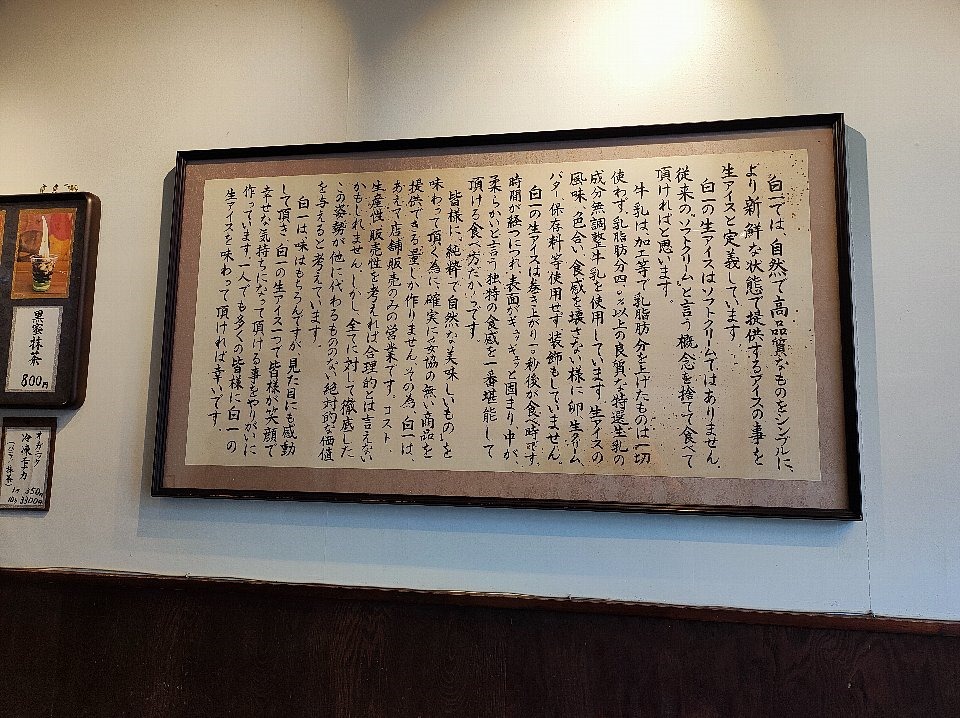 白一では、自然で高品質なものをシンプルに、
より新鮮な状態で提供するアイスの事を
生アイスと定義しています。
白一の生アイスはソフトクリームではありません。
従来の「ソフトクリーム」と言う概念を捨てて食べて
頂ければと思います。
牛乳は、加工等で乳脂肪分を上げたものは一切
使わず、乳脂肪分四・〇%以上の良質な特選生乳の
成分無調整牛乳を使用しています。生アイスの
風味、色合い、食感を壊さない様に卵、生クリーム、
バター、保存料等使用せず、装飾もしていません。
白一の生アイスは巻き上がり一〇秒後が食べ時です。
時間が経つにつれ、表面がギュッギュッと固まり、中が、
柔らかいと言う独特の食感を一番堪能して
頂ける食べ方だからです。
皆様に、「純粋で自然な美味しいもの」を
味わって頂く為に、確実に妥協の無い商品を
提供できる量しか作りません。その為、白一は、
あえて店舗販売のみの営業です。コスト、
生産性、販売性を考えれば合理的とは言えない
かもしれません。しかし、全てに対して徹底した
この姿勢が他に代わるもののない絶対的な価値
を与えると考えています。
白一は味はもちろんですが、見た目にも感動
して頂き、白一の生アイス一つで皆様が笑顔で
幸せな気持ちになって頂ける事をやりがいに
作っています。一人でも多くの皆様に白一の
生アイスを味わって頂ければ幸いです。
黒蜜抹茶
800円
オーガニック
冷凍モナカ
(バニラ、抹茶)
1ヶ 350円
10ヶ 3300円